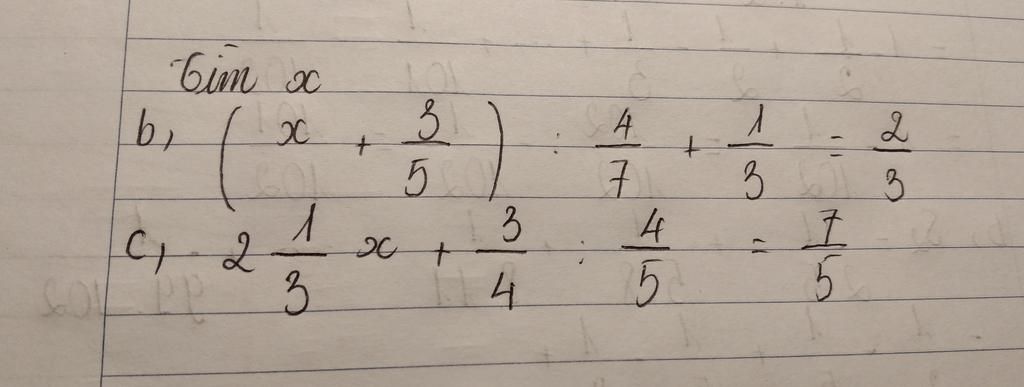 Tìm x
b, ( x + 3/5 ) : 4/7 + 1/3 = 2/3
c, 2 1/3 x + 3/4 : 4/5 = 7/5